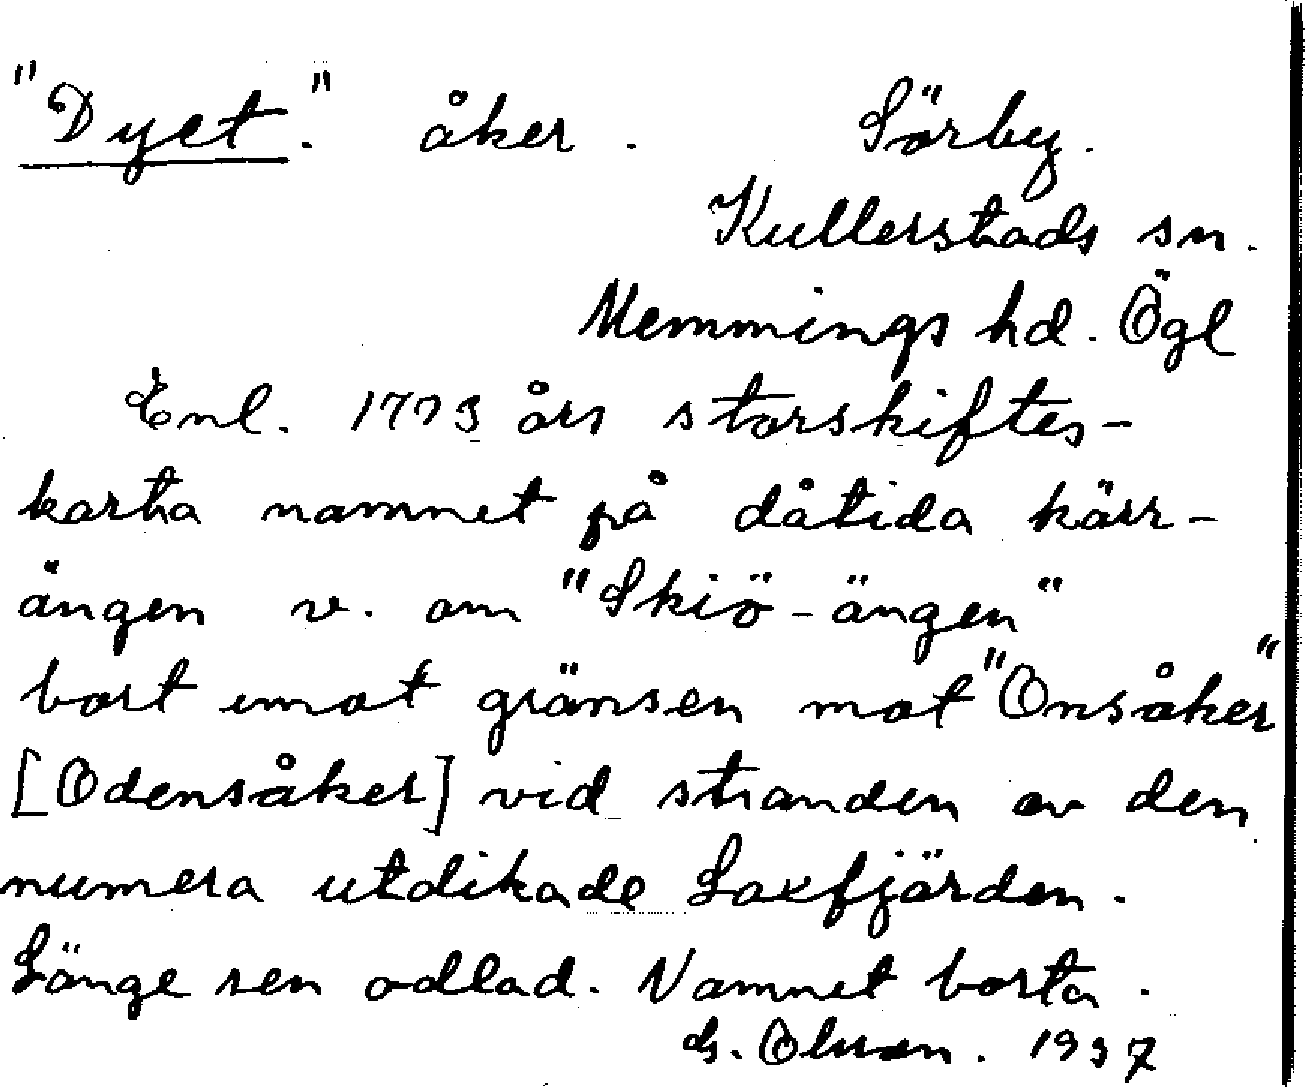 "Dyet." åker. Sörby.
Kullerstads sn.
Memmings hd. Ögl
Enl. 1773 års storskiftes-
karta namnet på dåtida kärr-
ängen v. om "Skiö-ängen"
bort emot gränsen mot "Onsåker"
[Odensåker] vid stranden av den
numera utdikade Laxfjärden.
Länge sen odlad. Namnet borta.
Olsson. 1937